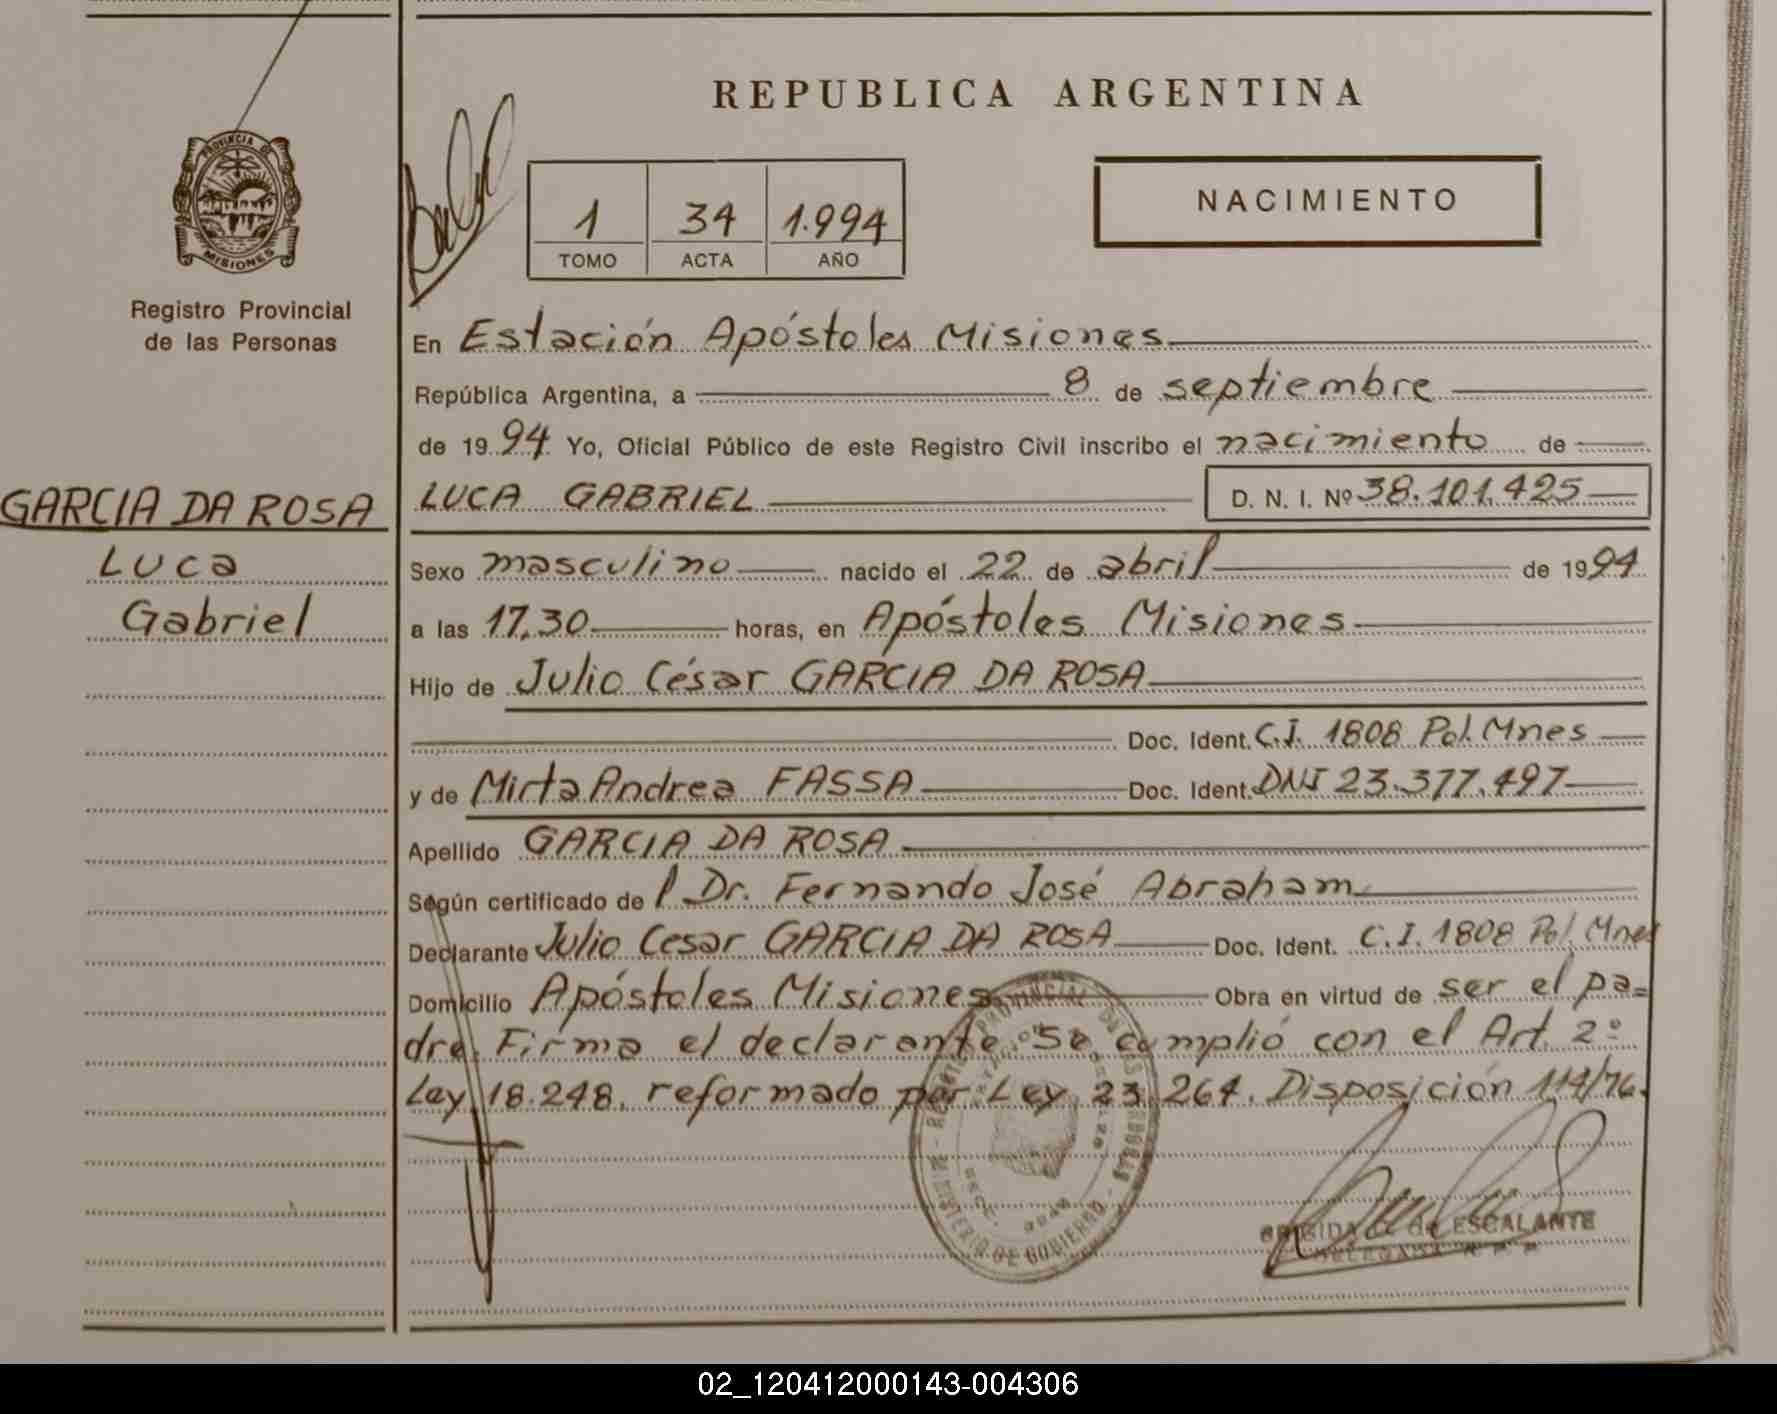 REPUBLICA ARGENTINA
PROVINCIA DE
MISIONES
Registro Provincial
de las Personas
1 34 1.994
TOMO ACTA AÑO
NACIMIENTO
En Estación Apóstoles Misiones
República Argentina, a 8 de septiembre
de 1994 Yo, Oficial Público de este Registro Civil inscribo el nacimiento de
GARCIA DA ROSA
Luca
Gabriel
LUCA GABRIEL D. N. I. Nº 38.101.425
Sexo masculino nacido el 22 de abril de 1994
a las 17,30 horas, en Apóstoles Misiones
Hijo de Julio César GARCIA DA ROSA
Doc. Ident. C.I. 1808 Pol. Mnes
y de Mirta Andrea FASSA Doc. Ident. DNI 23.377.497
Apellido GARCIA DA ROSA
Según certificado de l Dr. Fernando José Abraham
Declarante Julio Cesar GARCIA DA ROSA Doc. Ident. C.I. 1808 Pol. Mnes
Domicilio Apóstoles Misiones Obra en virtud de ser el pa=
dre. Firma el declarante. Se cumplió con el Art. 2º
Ley 18.248. reformado por Ley 23.264. Disposición 114/76.
MINISTERIO DE GOBIERNO - REGISTRO PROVINCIAL DE LAS PERSONAS
de ESCALANTE
02_120412000143-004306